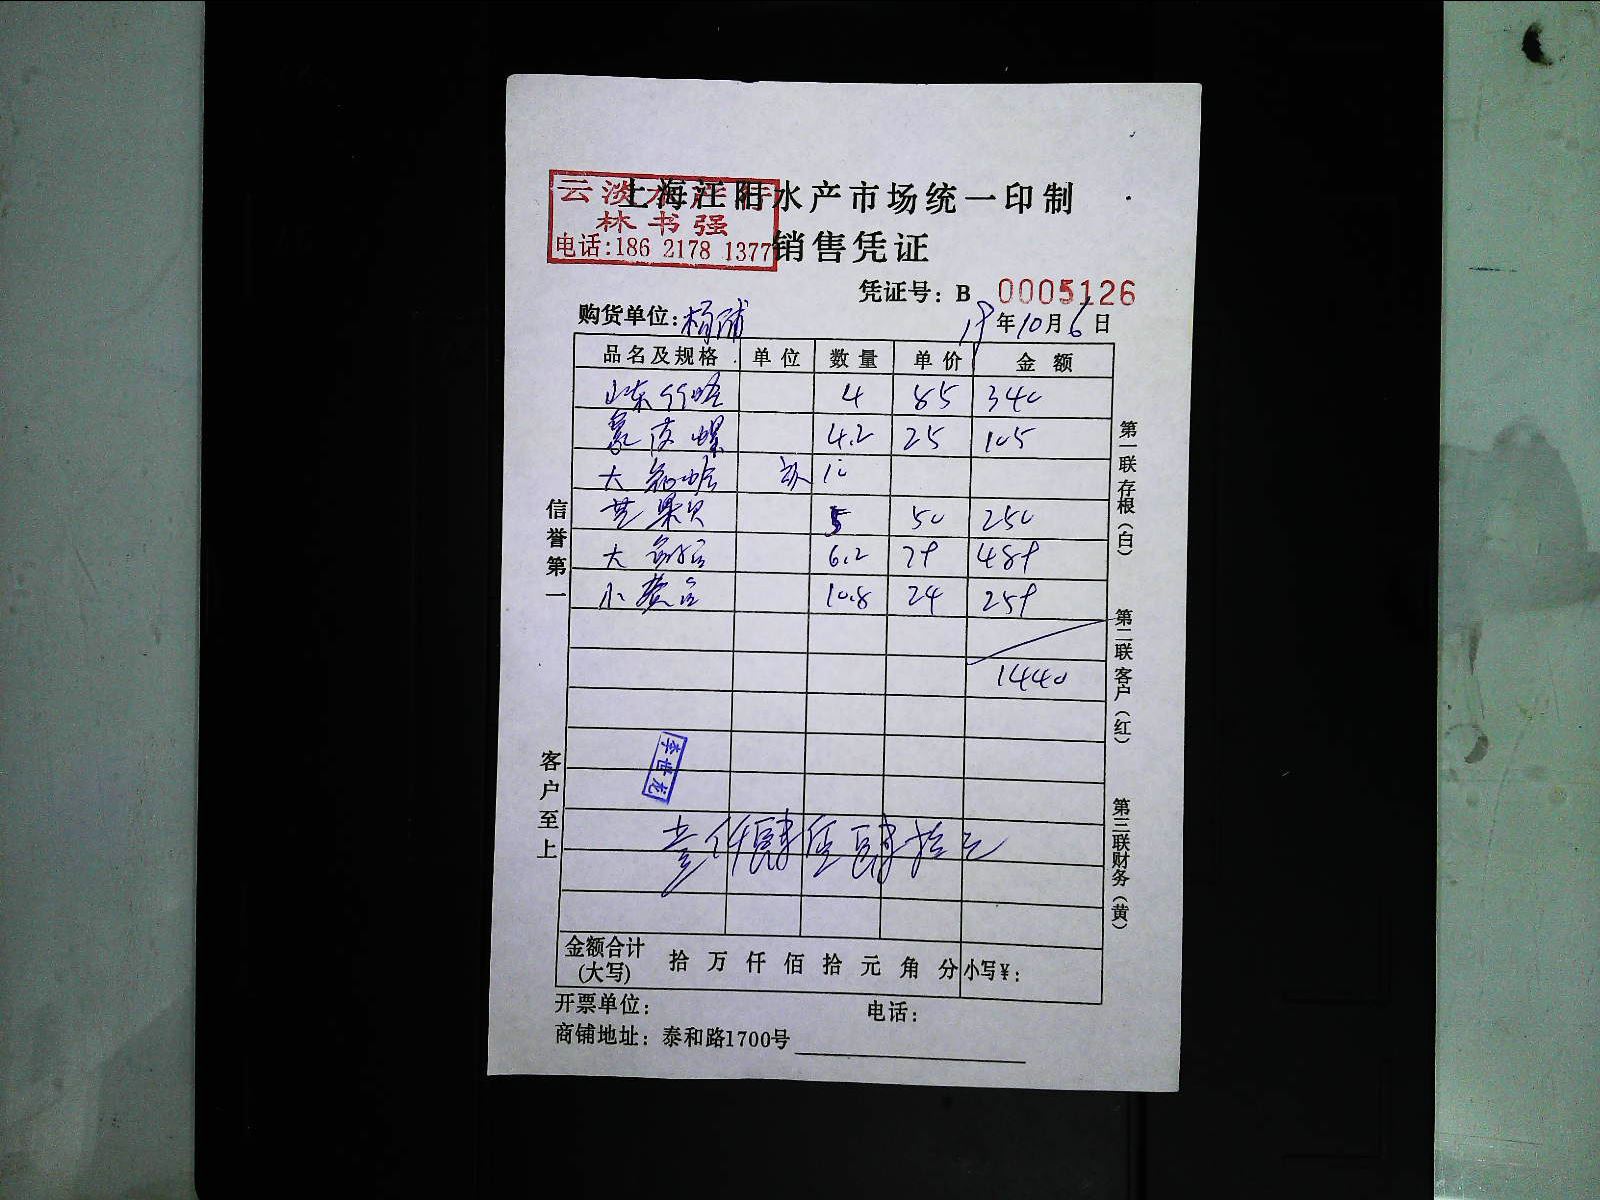 云淡水产行
林书强
电话:186 2178 1377
上海江阳水产市场统一印制
销售凭证
凭证号: B 0005126
购货单位:杨浦
19年10月6日
品名及规格 单位 数量 单价 金额
山东竹蛏 4 85 340
象皮螺 4.2 25 105
大 10
芒果贝 5 50 250
大 6.2 79 489
小 10.8 24 259
1440
李世龙
壹仟肆佰肆拾元
金额合计(大写) 拾 万 仟 佰 拾 元 角 分 小写¥:
开票单位: 电话:
商铺地址: 泰和路1700号
信誉第一
客户至上
第一联存根(白)
第二联客户(红)
第三联财务(黄)